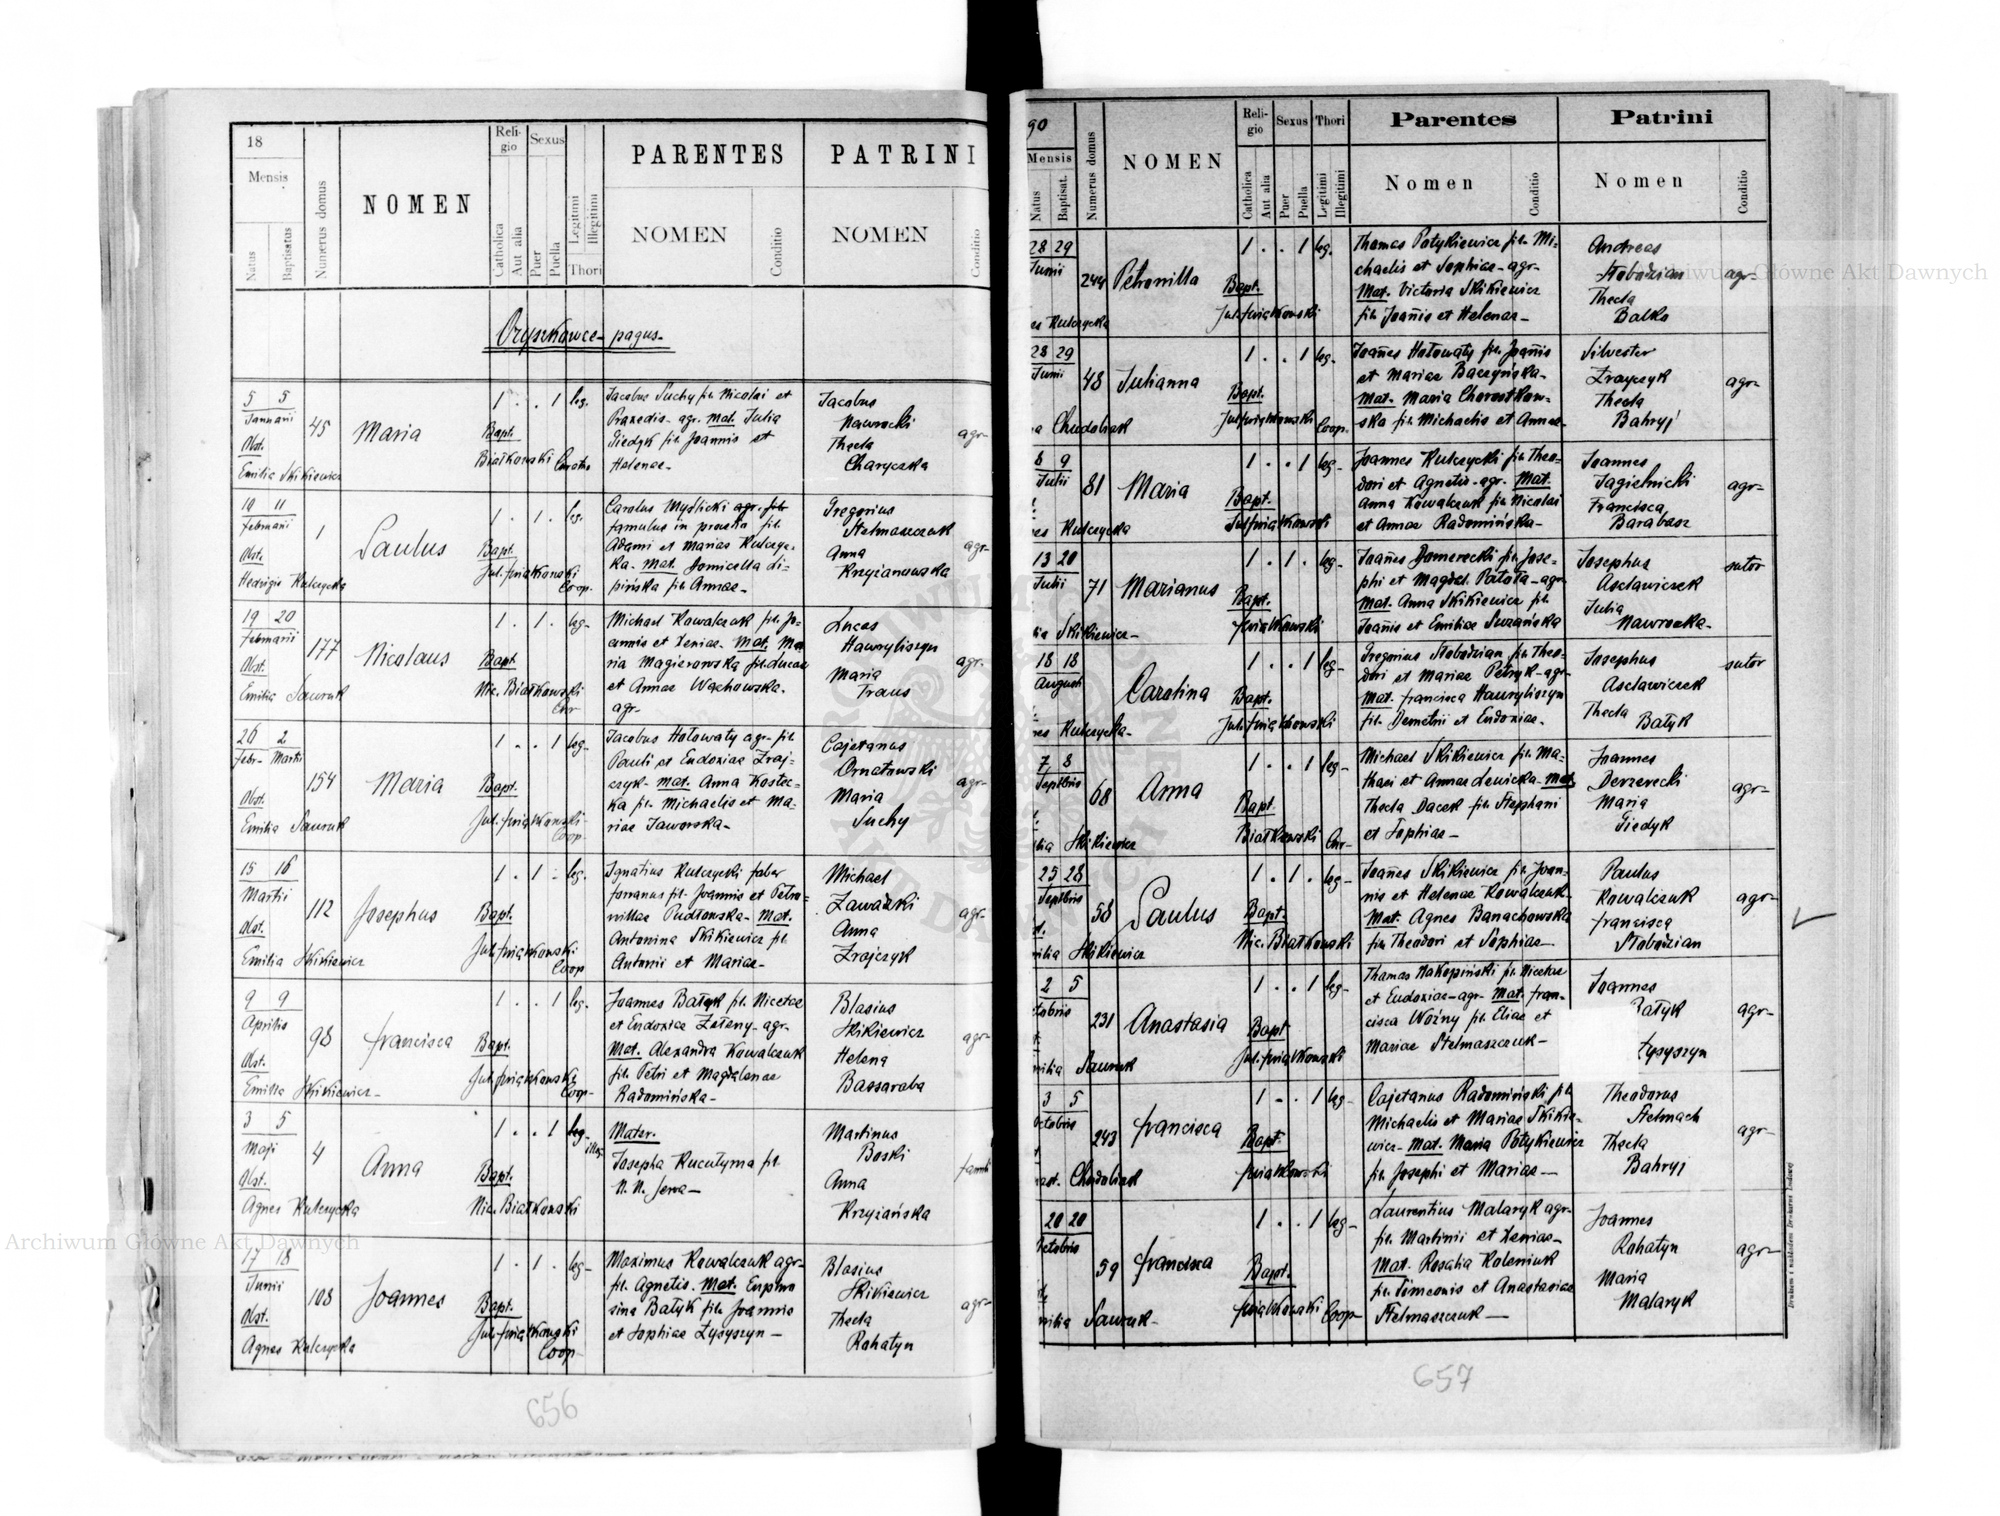 18
Mensis
Natus
Baptisatus
Numerus domus
NOMEN
Reli-
gio
Catholica
Aut alia
Sexus
Puer
Puella
Legitimi
Illegitimi
Thori
PARENTES
NOMEN
Conditio
PATRINI
NOMEN
Conditio
Oryszkowce - pagus -
5 5
Januarii
Obst.
Emilia Skikiewicz
45
Maria
1 . . 1 leg.
Bapt.
Białkowski
Jacobus Suchy fil. Nicolai et
Praxedis - agr. Mat. Julia
Giedyk fil. Joannis et
Helenae -
Jacobus
Nawrocki
Thecla
Charyczka
agr-
11
Februarii
Obst.
Hedvigis Kulczycka
1
Paulus
1 . 1 . leg.
Bapt.
Coop.
Carolus Myślicki agr. fil.
famulus in
Adami et Mariae Kulczyc-
ka - Mat. Domicella Li-
pińska fil. Annae -
Gregorius
Stelmaszczuk
Anna
Krzyżanowska
agr-
19 20
Februarii
Obst.
Emilia Sawruk
177
Nicolaus
1 . 1 . leg-
Bapt
Nic. Białkowski
Michael Kowalczuk fil. Jo-
annis et Xeniae - Mat. Ma
ria Magierowska fil. Lucae
et Annae Wąchowska -
agr-
Lucas
Hawryliszyn
Maria
Traus
agr-
26 2
Febr- Martii
Obst.
Emilia Sawruk
154
Maria
1 . . 1 leg-
Bapt.
Coop-
Jacobus Hołowaty agr- fil.
Pauli et Eudoxiae Zraj-
czyk - Mat. Anna Kostec-
ka fil. Michaelis et Ma-
riae Jaworska -
Cajetanus
Ornatowski
Maria
Suchy
agr-
15 16
Martii
Obst.
Emilia Skikiewicz
112
Josephus
1 . 1 . leg.
Bapt.
Coop
Ignatius Kulczycki faber
ferrarius fil. Joannis et Petro-
nillae Pudłowska - Mat.
Antonina Skikiewicz fil.
Antonii et Mariae -
Michael
Zawadzki
Anna
Zrajczyk
agr-
9 9
Aprilis
Obst.
Emilia Skikiewicz -
98
Francisca
1 . . 1 leg.
Bapt.
Coop-
Joannes Bałyk fil. Nicetae
et Eudoxiae Zełeny - agr-
Mat. Alexandra Kowalczuk
fil. Petri et Magdalenae
Radomińska -
Blasius
Skikiewicz
Helena
Bassaraba
agr-
3 5
Maji
Obst.
Agnes Kulczycka
4
Anna
1 . . 1 leg-
illeg.
Bapt.
Nic. Białkowski
Mater.
Josepha Kucutyma fil.
N. N. Jewa -
Martinus
Boski
Anna
Krzyżańska
17 18
Junii
Obst.
Agnes Kulczycka
108
Joannes
1 . 1 . leg-
Bapt.
Coop-
Maximus Kowalczuk agr-
fil. Agnetis. Mat. Euphro
sina Bałyk fil. Joannis
et Sophiae Łysyszyn -
Blasius
Skikiewicz
Thecla
Rohatyn
agr-
656
90
Mensis
Natus
Baptisat.
Numerus domus
NOMEN
Reli-
gio
Catholica
Aut alia
Sexus
Puer
Puella
Thori
Legitimi
Illegitimi
Parentes
Nomen
Conditio
Patrini
Nomen
Conditio
28 29
Junii
es Kulczycka
244
Petronilla
1 . . 1 leg.
Bapt.
Thomas Potykiewicz fil. Mi-
chaelis et Sophiae - agr-
Mat. Victoria Skikiewicz
fil. Joannis et Helenae -
Andreas
Słobodzian
Thecla
Balko
agr-
28 29
Junii
a Chudobiak
48
Julianna
1 . . 1 leg-
Bapt.
Coop.
Joannes Hołowaty fil. Joannis
et Mariae Baczyńska -
Mat. Maria Chorostkow-
ska fil. Michaelis et Annae -
Silvester
Zrayczyk
Thecla
Bahryj
agr-
8 9
Julii
es Kulczycka
81
Maria
1 . . 1 leg-
Bapt.
Joannes Kulczycki fil. Theo-
dori et Agnetis - agr. Mat.
Anna Kowalczuk fil. Nicolai
et Annae Radomińska -
Joannes
Jagielnicki
Francisca
Barabasz
agr-
13 20
Julii
ia Skikiewicz -
71
Marianus
1 . 1 . leg-
Bapt.
Joannes Domerecki fil. Jose-
phi et Magdal. Patoła - agr
Mat. Anna Skikiewicz fil.
Joannis et Emiliae Suzańska
Josephus
Asclawiczek
Julia
Nawrocka -
sutor
18 18
Augusti
es Kulczycka -
Carolina
1 . . 1 leg-
Bapt.
Gregorius Słobodzian fil. Theo-
dori et Mariae Petryk - agr-
Mat. Francisca Hawryliszyn
fil. Demetrii et Eudoxiae -
Josephus
Asclawiczek
Thecla
Bałyk
sutor
7 8
Septbris
ilia Skikiewicz
68
Anna
1 . . 1 leg-
Bapt.
Białkowski Cur-
Michael Skikiewicz fil. Ma-
thaei et Annae Lewicka - Mat.
Thecla Dacek fil. Stephani
et Sophiae -
Joannes
Derzerecki
Maria
Giedyk
agr-
25 28
Septbris
milia Skikiewicz
58
Paulus
1 . 1 . leg-
Bapt.
Nic. Białkowski
Joannes Skikiewicz fil. Joan-
nis et Helenae Kowalczuk -
Mat. Agnes Banachowska
fil. Theodori et Sophiae -
Paulus
Kowalczuk
Francisca
Słobodzian
agr-
2 5
tobris
milia Sawruk
231
Anastasia
1 . . 1 leg-
Bapt
Thomas Nakopiński fil. Nicetae
et Eudoxiae - agr- Mat. Fran-
cisca Woźny fil. Eliae et
Mariae Stelmaszczuk -
Joannes
ałyk
Łysyszyn
agr-
3 5
Octobris
ast. Chudobiak
243
Francisca
1 . . 1 leg-
Bapt.
Cajetanus Radomiński fil.
Michaelis et Mariae Skikie-
wicz - Mat. Maria Potykiewicz
fil. Josephi et Mariae -
Theodorus
Stelmach
Thecla
Bahryj
agr-
20 20
Octobris
milia Sawruk -
59
Francisca
1 . . 1 leg-
Bapt.
Coop-
Laurentius Malaryk agr-
fil. Martinii et Xeniae -
Mat. Rosalia Koleniuk
fil. Simeonis et Anastasiae
Stelmaszczuk -
Joannes
Rohatyn
Maria
Malaryk
agr-
657
Archiwum Główne Akt Dawnych
Archiwum Główne Akt Dawnych